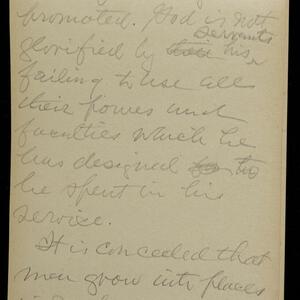 promoted. God is not
glorified by his servants
failing to use all
their powes and
faculties which he
has designed to
be spent in his
service.
It is conceded that
men grow into places